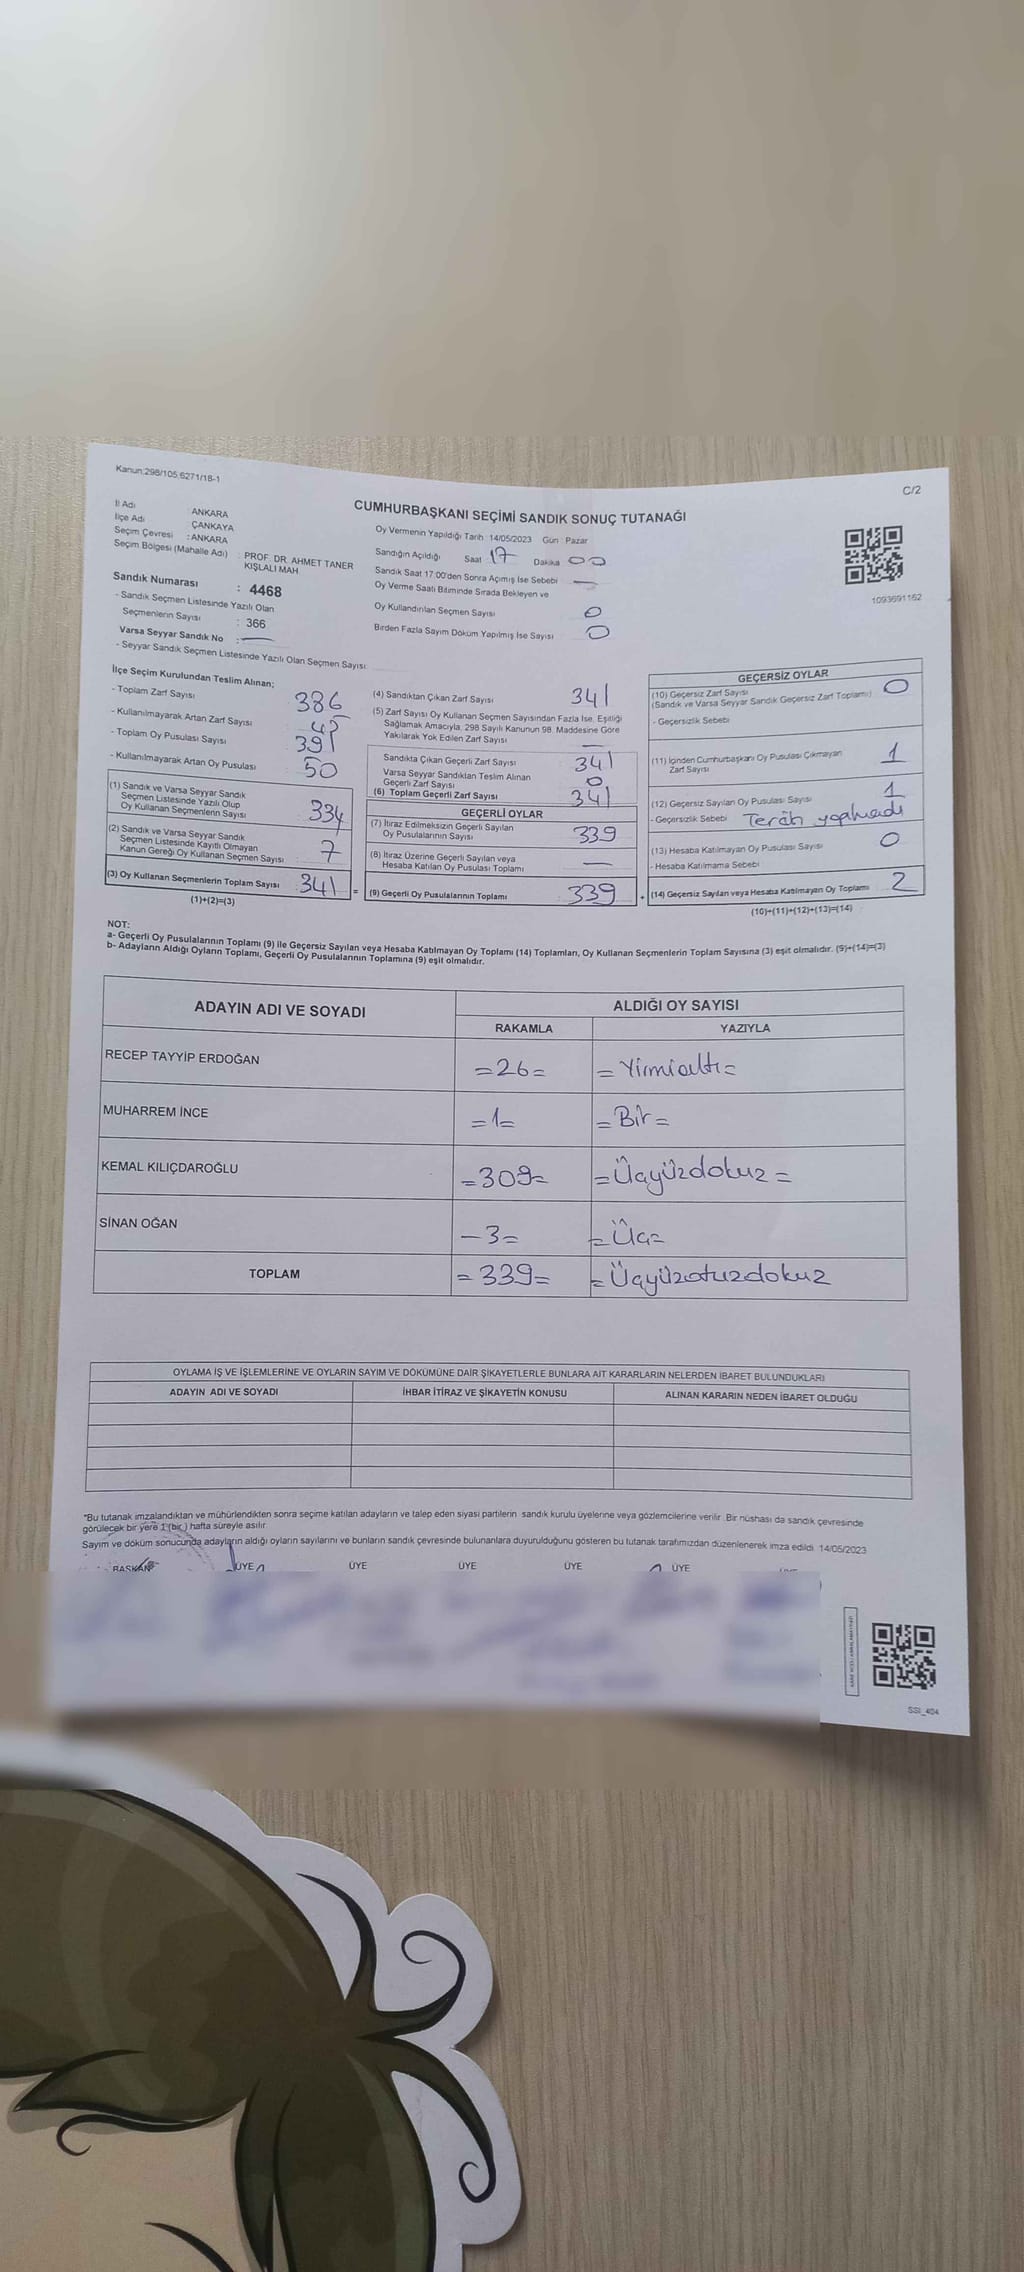 Kanun:298/105,6271/18-1
C/2
CUMHURBAŞKANI SEÇİMİ SANDIK SONUÇ TUTANAĞI
İl Adı : ANKARA
İlçe Adı : ÇANKAYA
Seçim Çevresi : ANKARA
Seçim Bölgesi (Mahalle Adı) : PROF. DR. AHMET TANER KIŞLALI MAH
Sandık Numarası : 4468
- Sandık Seçmen Listesinde Yazılı Olan
Seçmenlerin Sayısı : 366
Varsa Seyyar Sandık No :
- Seyyar Sandık Seçmen Listesinde Yazılı Olan Seçmen Sayısı:
Oy Vermenin Yapıldığı Tarih: 14/05/2023 Gün: Pazar
Sandığın Açıldığı Saat 17 Dakika 00
Sandık Saat 17:00'den Sonra Açımış İse Sebebi —
Oy Verme Saati Bitiminde Sırada Bekleyen ve
Oy Kullandırılan Seçmen Sayısı 0
Birden Fazla Sayım Döküm Yapılmış İse Sayısı 0
1093691162
İlçe Seçim Kurulundan Teslim Alınan;
- Toplam Zarf Sayısı 386
- Kullanılmayarak Artan Zarf Sayısı 45
- Toplam Oy Pusulası Sayısı 391
- Kullanılmayarak Artan Oy Pusulası 50
(1) Sandık ve Varsa Seyyar Sandık
Seçmen Listesinde Yazılı Olup
Oy Kullanan Seçmenlerin Sayısı 334
(2) Sandık ve Varsa Seyyar Sandık
Seçmen Listesinde Kayıtlı Olmayan
Kanun Gereği Oy Kullanan Seçmen Sayısı : 7
(3) Oy Kullanan Seçmenlerin Toplam Sayısı : 341 =
(1)+(2)=(3)
(4) Sandıktan Çıkan Zarf Sayısı 341
(5) Zarf Sayısı Oy Kullanan Seçmen Sayısından Fazla İse, Eşitliği
Sağlamak Amacıyla, 298 Sayılı Kanunun 98. Maddesine Göre
Yakılarak Yok Edilen Zarf Sayısı —
Sandıkta Çıkan Geçerli Zarf Sayısı 341
Varsa Seyyar Sandıktan Teslim Alınan
Geçerli Zarf Sayısı 0
(6) Toplam Geçerli Zarf Sayısı 341
GEÇERLİ OYLAR
(7) İtiraz Edilmeksizin Geçerli Sayılan
Oy Pusulalarının Sayısı 339
(8) İtiraz Üzerine Geçerli Sayılan veya
Hesaba Katılan Oy Pusulası Toplamı —
(9) Geçerli Oy Pusulalarının Toplamı : 339 +
GEÇERSİZ OYLAR
(10) Geçersiz Zarf Sayısı 0
(Sandık ve Varsa Seyyar Sandık Geçersiz Zarf Toplamı)
- Geçersizlik Sebebi
(11) İçinden Cumhurbaşkanı Oy Pusulası Çıkmayan
Zarf Sayısı 1
(12) Geçersiz Sayılan Oy Pusulası Sayısı 1
- Geçersizlik Sebebi Tercih yapılmadı
(13) Hesaba Katılmayan Oy Pusulası Sayısı 0
- Hesaba Katılmama Sebebi
(14) Geçersiz Sayılan veya Hesaba Katılmayan Oy Toplamı 2
(10)+(11)+(12)+(13)=(14)
NOT:
a- Geçerli Oy Pusulalarının Toplamı (9) ile Geçersiz Sayılan veya Hesaba Katılmayan Oy Toplamı (14) Toplamları, Oy Kullanan Seçmenlerin Toplam Sayısına (3) eşit olmalıdır. (9)+(14)=(3)
b- Adayların Aldığı Oyların Toplamı, Geçerli Oy Pusulalarının Toplamına (9) eşit olmalıdır.
ADAYIN ADI VE SOYADI
ALDIĞI OY SAYISI
RAKAMLA YAZIYLA
RECEP TAYYİP ERDOĞAN =26= = Yirmialtı =
MUHARREM İNCE =1= = Bir =
KEMAL KILIÇDAROĞLU =309= = Üçyüzdokuz =
SİNAN OĞAN =3= = Üç =
TOPLAM =339= = Üçyüzotuzdokuz
OYLAMA İŞ VE İŞLEMLERİNE VE OYLARIN SAYIM VE DÖKÜMÜNE DAİR ŞİKAYETLERLE BUNLARA AİT KARARLARIN NELERDEN İBARET BULUNDUKLARI
ADAYIN ADI VE SOYADI İHBAR İTİRAZ VE ŞİKAYETİN KONUSU ALINAN KARARIN NEDEN İBARET OLDUĞU
*Bu tutanak imzalandıktan ve mühürlendikten sonra seçime katılan adayların ve talep eden siyasi partilerin sandık kurulu üyelerine veya gözlemcilerine verilir. Bir nüshası da sandık çevresinde
görülecek bir yere 1 (bir) hafta süreyle asılır.
Sayım ve döküm sonucunda adayların aldığı oyların sayılarını ve bunların sandık çevresinde bulunanlara duyurulduğunu gösteren bu tutanak tarafımızdan düzenlenerek imza edildi. 14/05/2023
BAŞKAN ÜYE ÜYE ÜYE ÜYE ÜYE
SSI_404